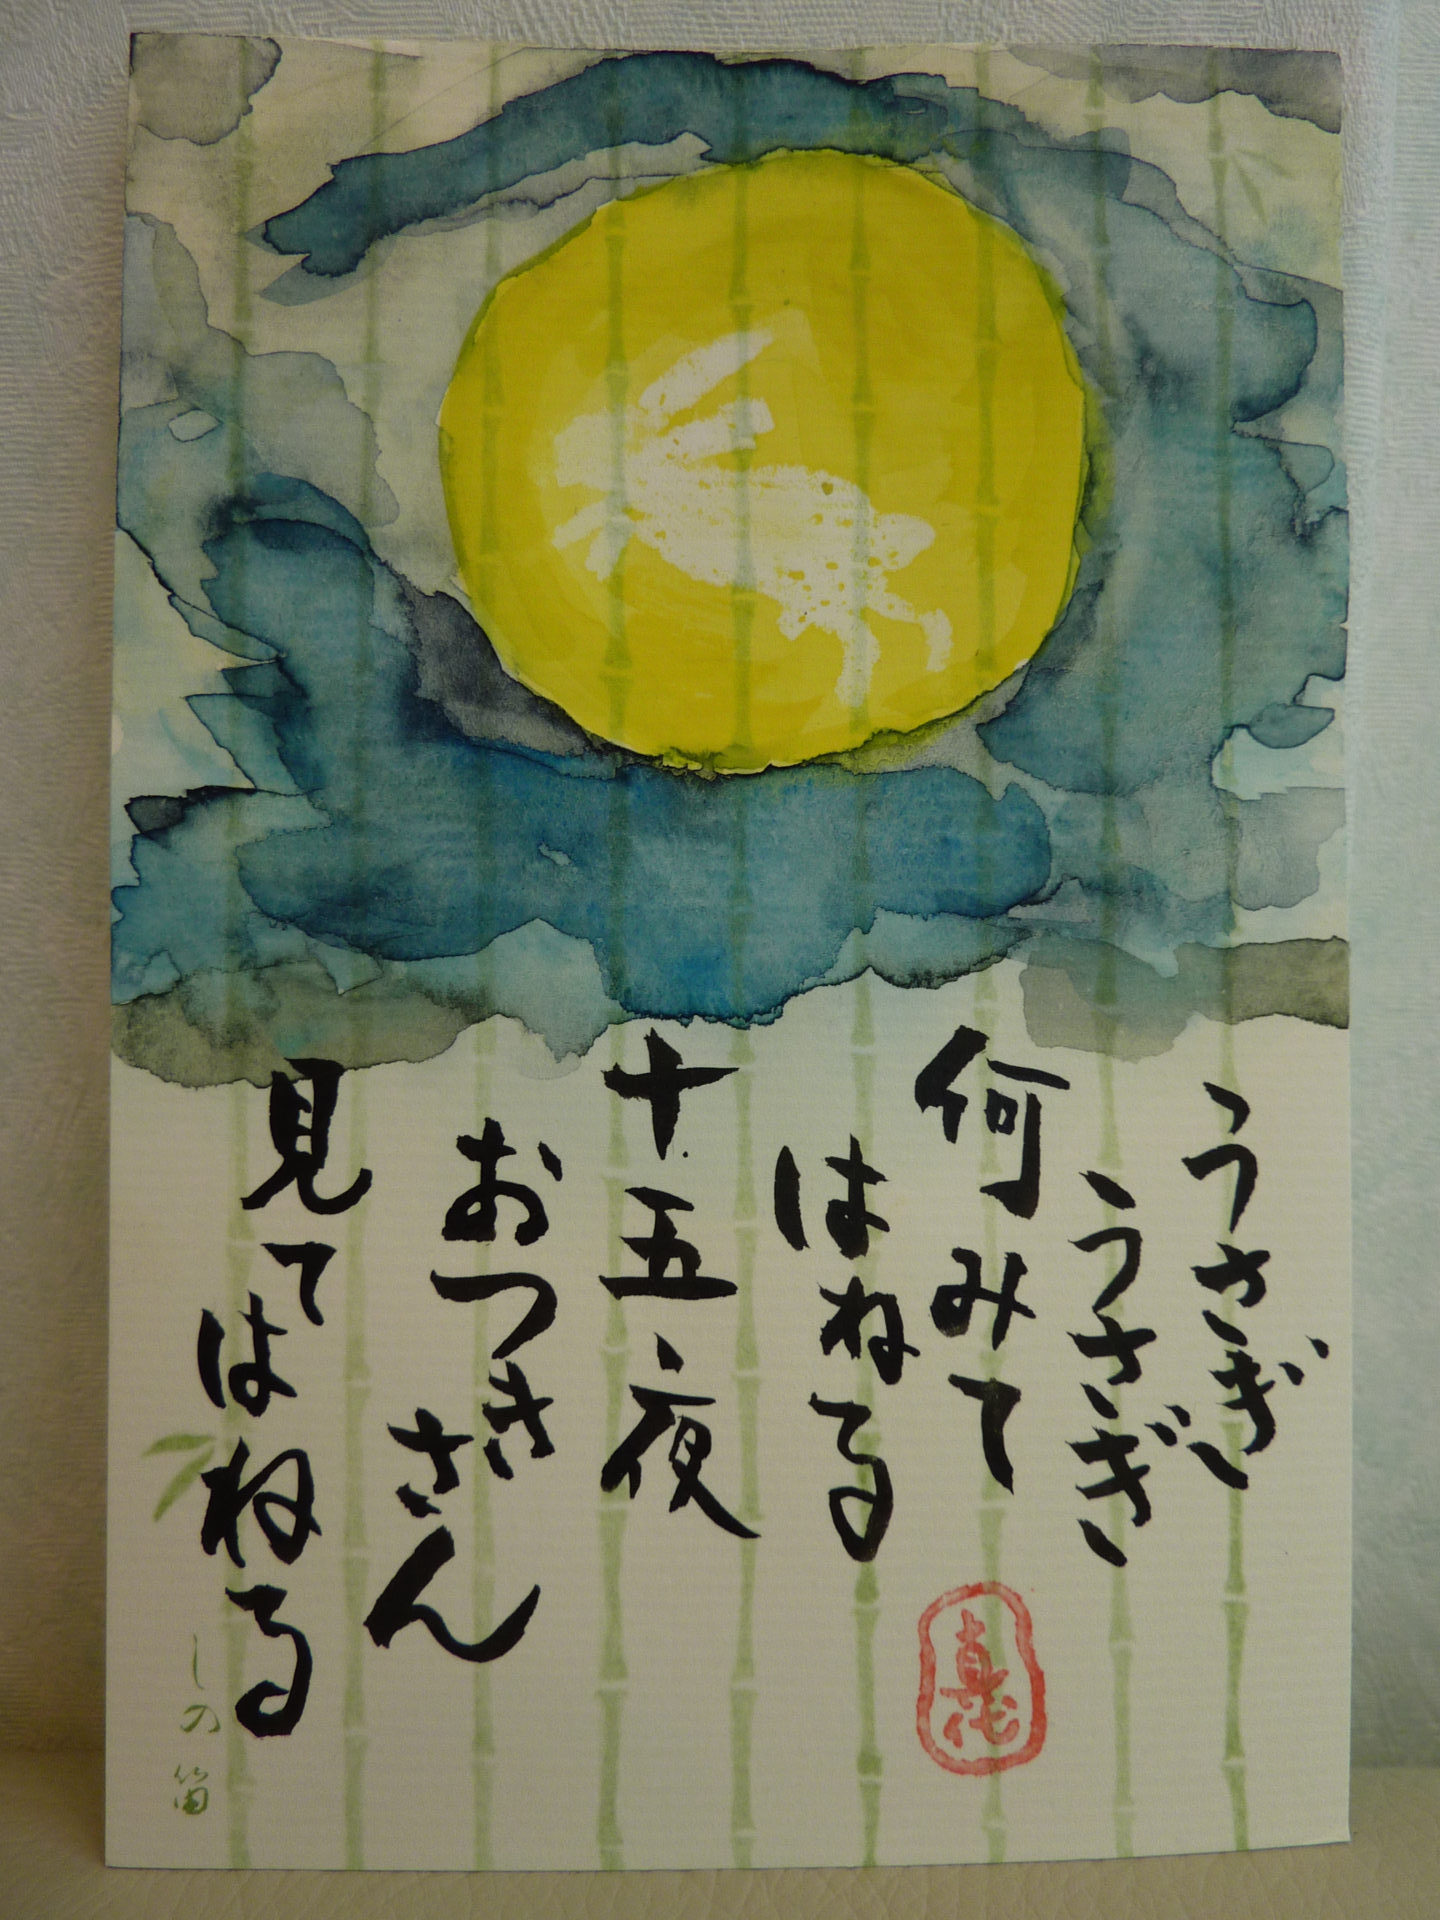 うさぎ
うさぎ
何みて
はねる
十五夜
おつき
さん
見て
はねる
しの笛